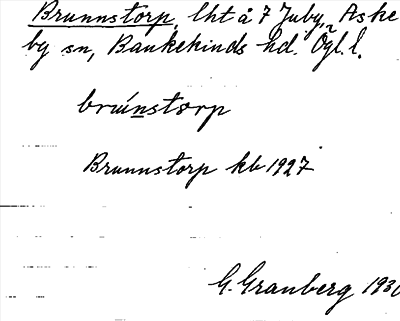 Brunnstorp, lht å 7 Juby, Aske
by sn, Bankekinds hd. Ögl. l.
bruunstorp
Brunnstorp kb 1927
G. Granberg 193